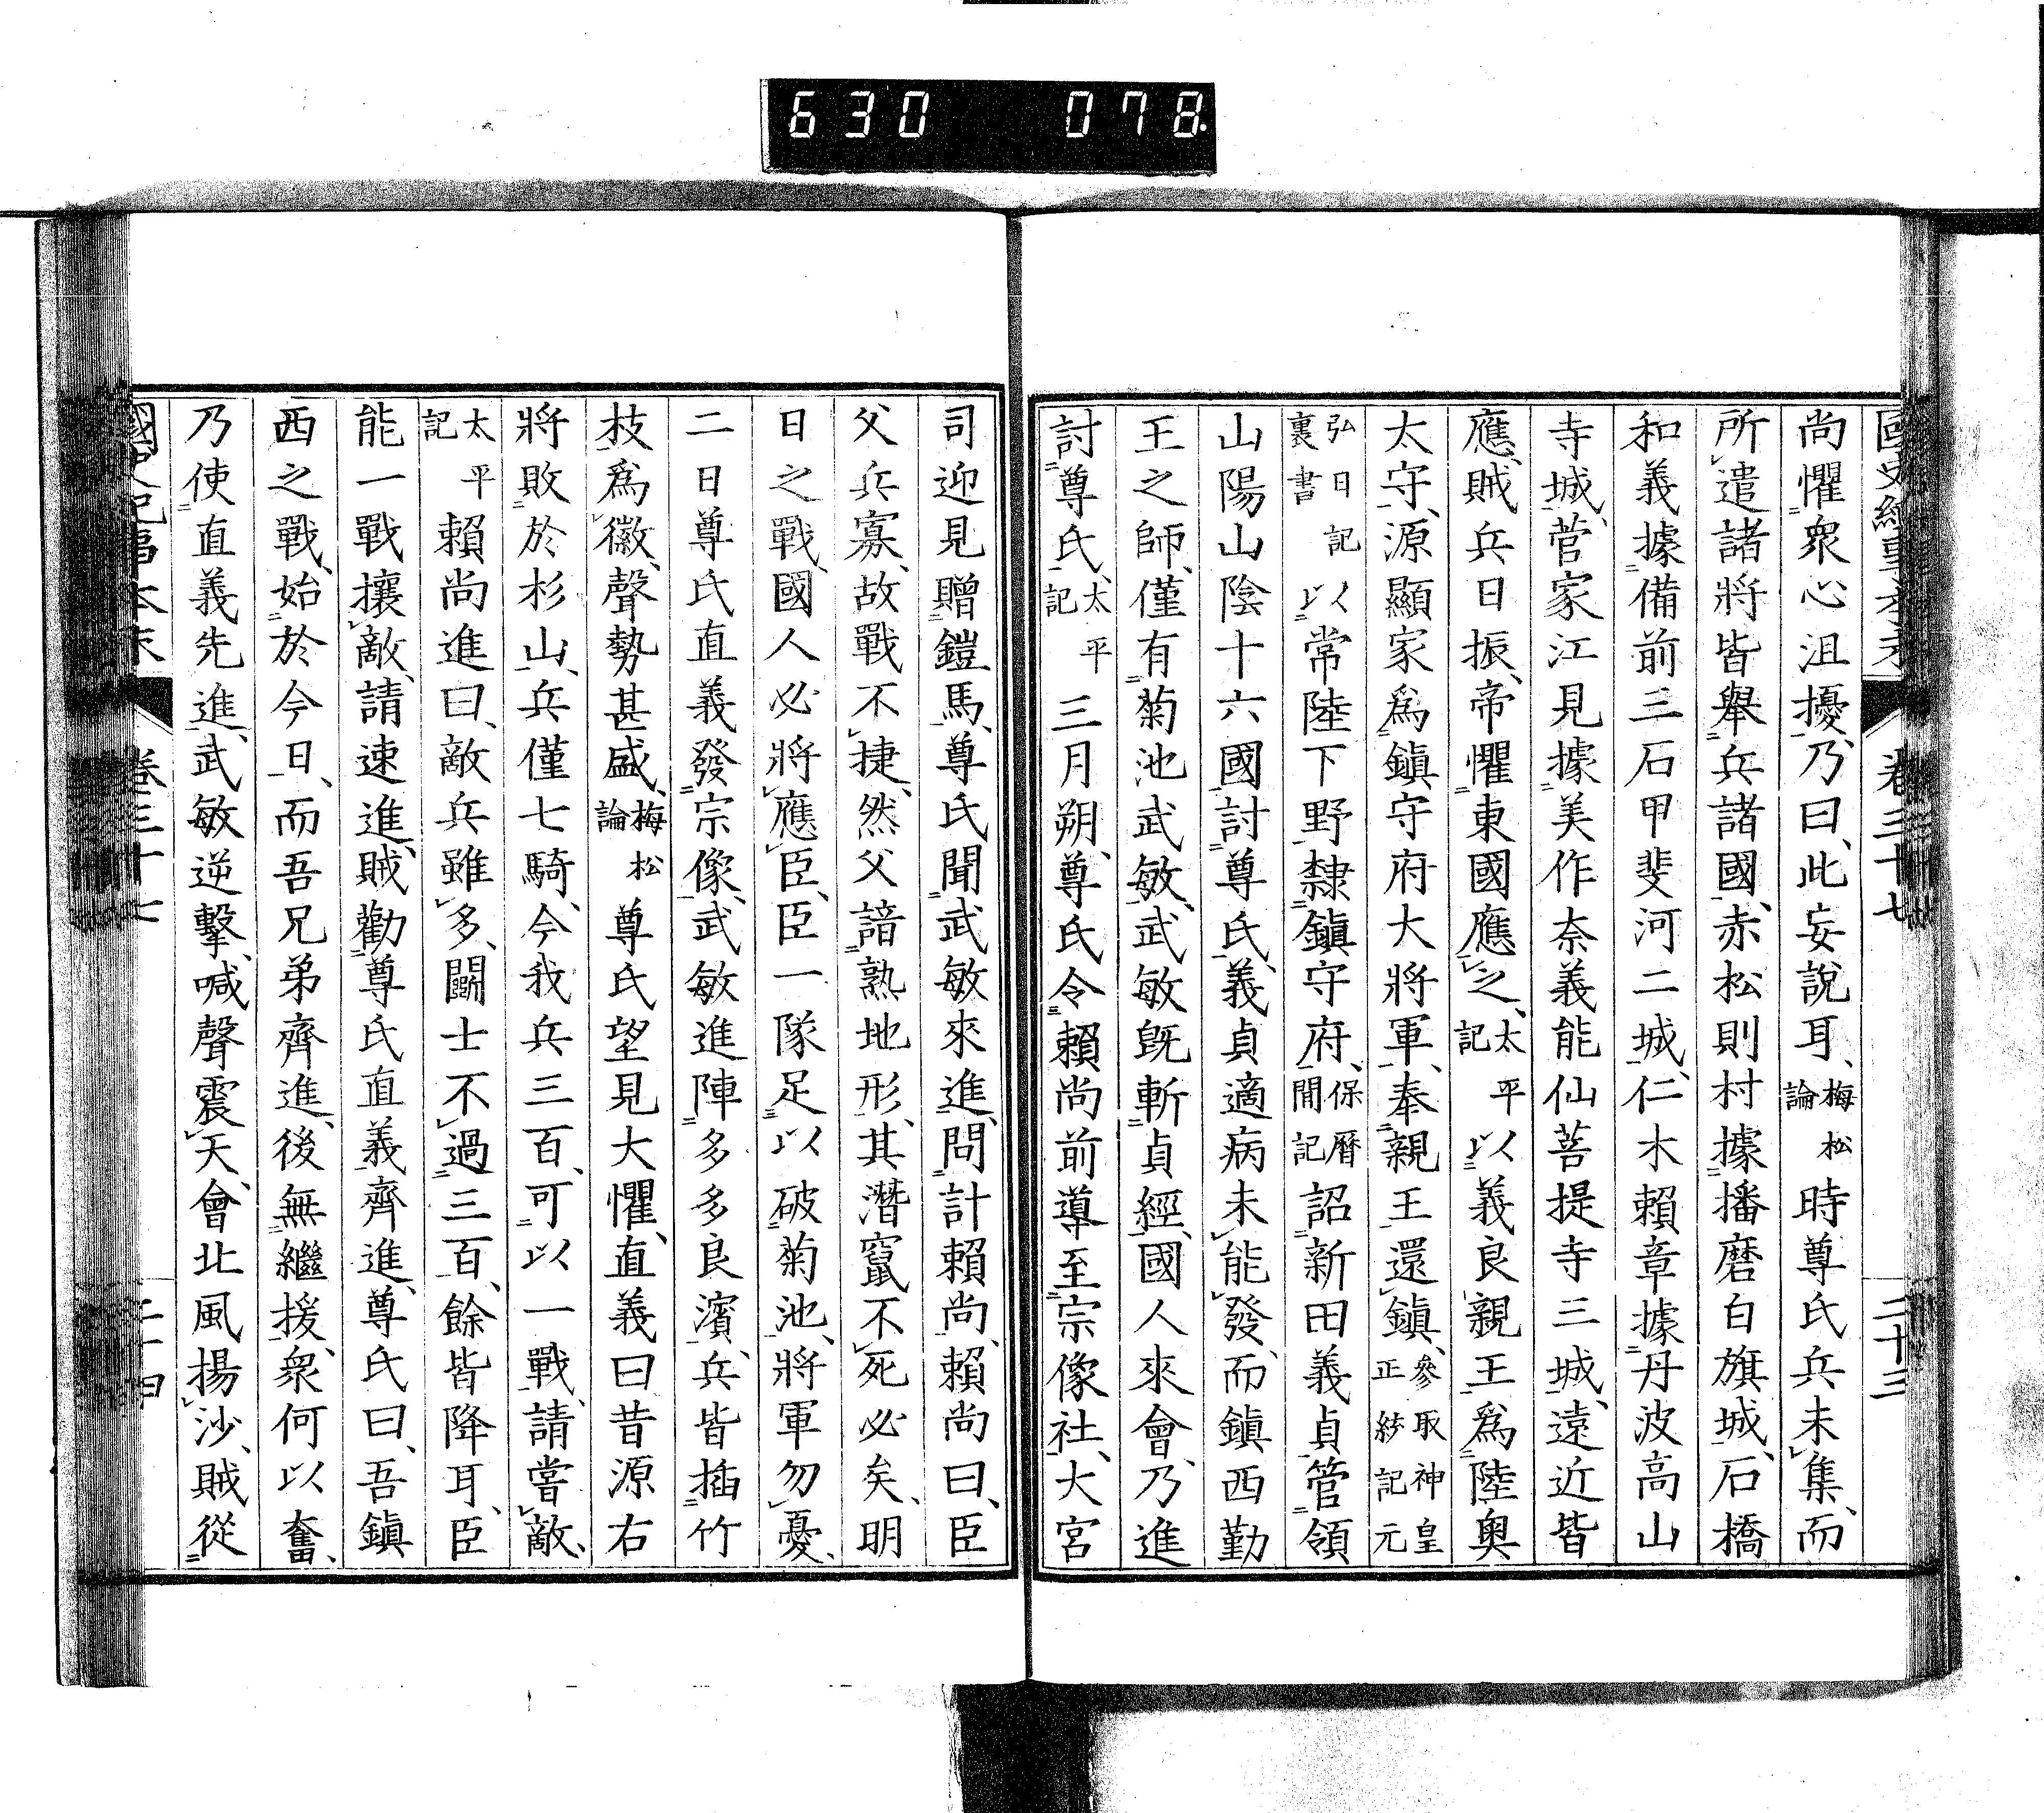 630 078
尚懼衆心沮擾、乃曰、此妄說耳、梅松論時尊氏兵未集、而
所遣諸將皆舉兵諸國、赤松則村據播磨白旗城、石橋
和義據備前三石甲斐河二城、仁木賴章據丹波高山
寺城、菅家江見據美作奈義能仙菩提寺三城、遠近皆
應、賊兵日振、帝懼東國應之、太平記以義良親王爲陸奧
太守、源顯家爲鎭守府大將軍、奉親王還鎭、參取神皇正紗記元
弘日記裏書以常陸下野隸鎭守府、保曆間記詔新田義貞管領
山陽山陰十六國討尊氏、義貞適病未能發、而鎭西勤
王之師、僅有菊池武敏、武敏既斬貞經、國人來會、乃進
討尊氏、太平記三月朔、尊氏令賴尚前導至宗像社、大宮
司迎見贈鎧馬、尊氏聞武敏來進、問計賴尚、賴尚曰、臣
父兵寡、故戰不捷、然父諳熟地形、其潛竄不死必矣、明
日之戰、國人必將應臣、臣一隊足以破菊池、將軍勿憂、
二日尊氏直義發宗像、武敏進陣多多良濱、兵皆插竹
枝爲徽、聲勢甚盛、梅松論尊氏望見大懼、直義曰昔源右
將敗於杉山、兵僅七騎、今我兵三百、可以一戰、請嘗敵、
太平記賴尚進曰、敵兵雖多、鬬士不過三百、餘皆降耳、臣
能一戰攘敵、請速進、賊勸尊氏直義齊進、尊氏曰、吾鎭
西之戰、始於今日、而吾兄弟齊進、後無繼援、衆何以奮、
乃使直義先進、武敏逆擊、喊聲震天、會北風揚沙、賊從
國史紀事本末 卷三十七